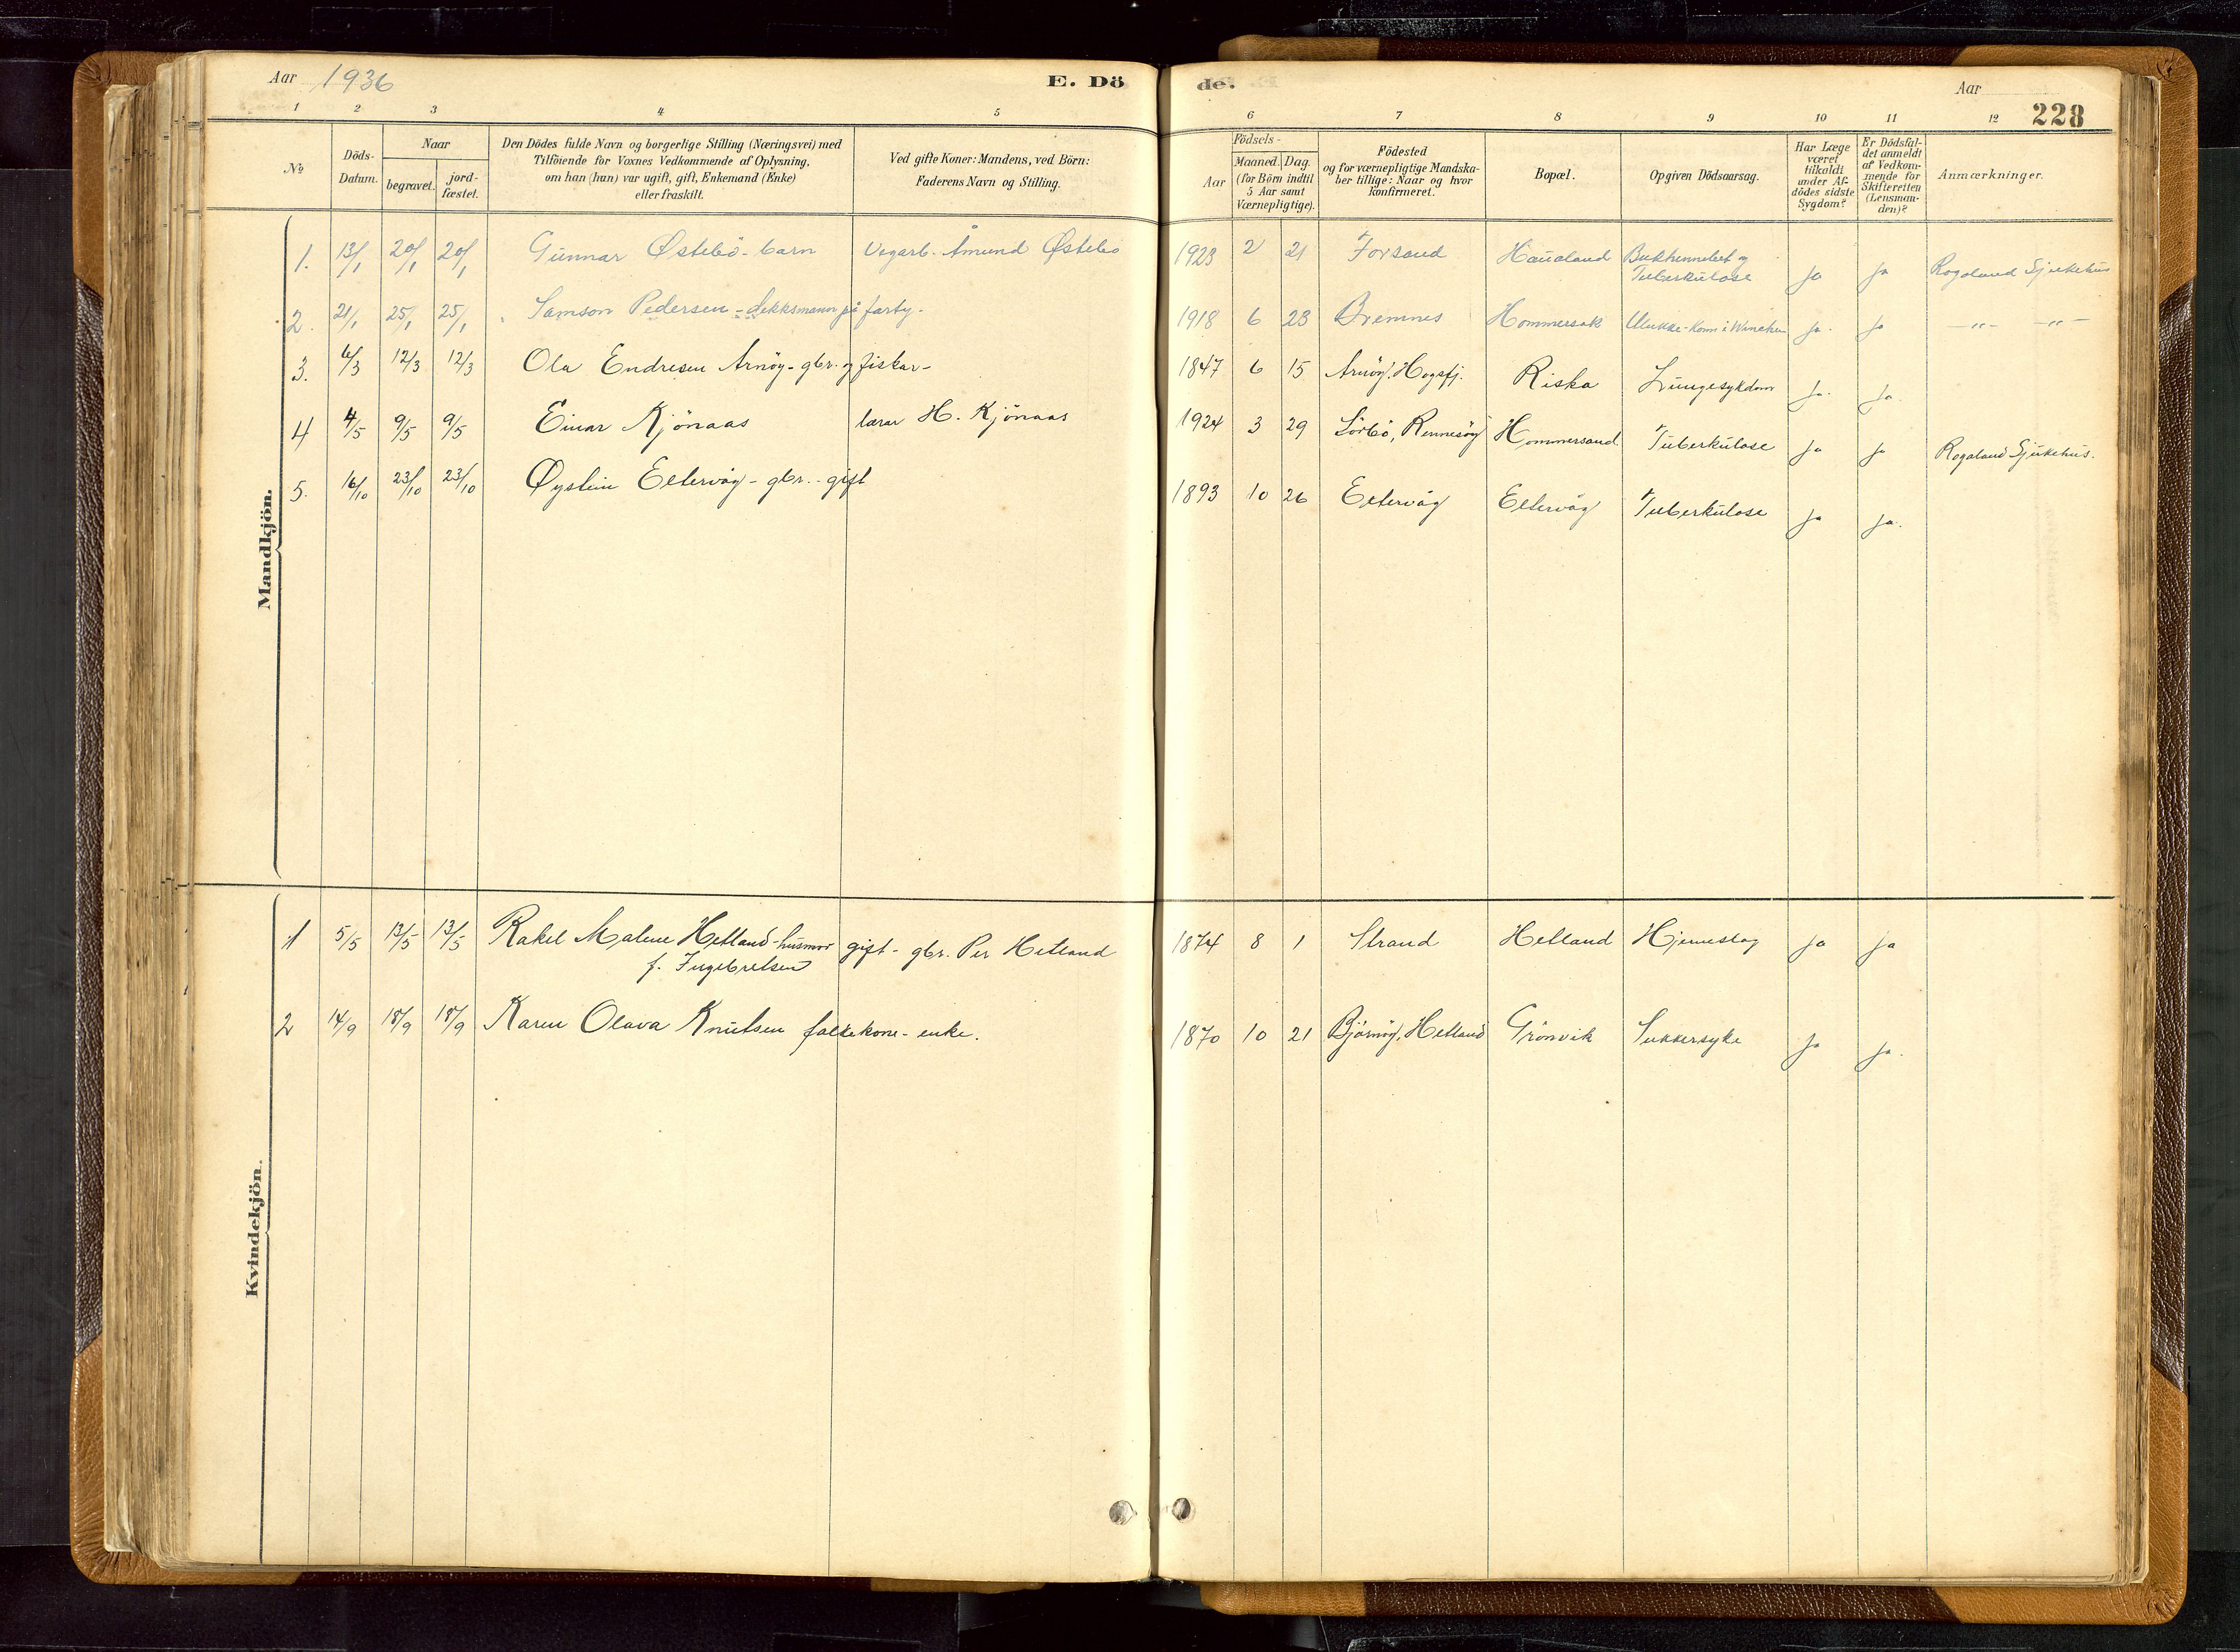 Aar 1936 E. Dö
de. Aar
228
1 2 3 4 5
6 7 8 9 10 11 12
No
Döds-Datum.
Naar
begravet.
jord-fæstet.
Den Dödes fulde Navn og borgerlige Stilling (Næringsvei) med
Tilföiende for Voxnes Vedkommende af Oplysning,
om han (hun) var ugift, gift, Enkemand (Enke)
eller fraskilt.
Ved gifte Koner: Mandens, ved Börn:
Faderens Navn og Stilling.
Födsels-
Aar
Maaned. Dag.
(for Börn indtil
5 Aar samt
Værnepligtige).
Födested
og for værnepligtige Mandska-
ber tillige: Naar og hvor
konfirmeret.
Bopæl.
Opgiven Dödsaarsag.
Har Læge
været
tilkaldt
under Af-
dödes sidste
Sygdom?
Er Dödsfal-
det anmeldt
af Vedkom-
mende for
Skifteretten
(Lensman-
den)?
Anmærkninger.
Mandkjön.
1. 13/1 20/1 20/1 Gunnar Østebö - barn Vegarb. Åmund Østebö 1923 2 21 Forsand Haualand Bukhinnebet. og
Tuberkulose ja ja Rogaland Sjukehus
2. 21/1 25/1 25/1 Samson Pedersen - dekksmann på farty - 1918 6 23 Bremnes Hommersak Ulukke - Kom i Winchen ja ja -"- -"-
3. 6/3 12/3 12/3 Ola Endresen Arnöy - gbr. og fiskar - 1847 6 15 Arnöy, Hogsfj. Riska Lungesykdom ja ja
4 4/5 9/5 9/5 Einar Kjönaas lærar H. Kjönaas 1924 3 29 Sörbö, Rennesöy Hommersand Tuberkulose ja ja Rogaland Sjukehus.
5. 16/10 23/10 23/10 Øystein Eltervåg - gbr. - gift 1893 10 26 Eltervåg Eltervåg Tuberkulose ja ja.
Kvindekjön.
1 5/5 13/5 13/5 Rakel Malene Hetland - husmor gift - gbr. Per Hetland 1874 8 1 Strand Hetland Hjerneslag ja ja
f. Ingebretsen
2 14/9 18/9 18/9 Karen Olava Knutsen falkekone - enke. 1870 10 21 Björnöy, Hetland Grönvik Sukkersyke ja ja.